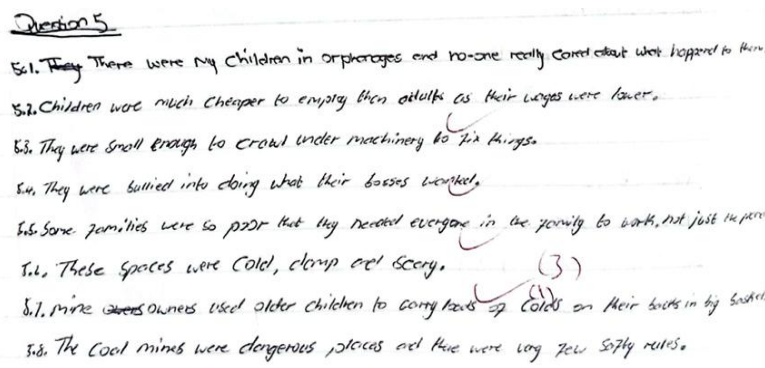 Question 5
5.1. They There were my children in orphanages and no-one really cared about what happend to them
5.2. Children were much cheaper to employ then adults as their wages were lower.
5.3. They were small enough to crawl under machinery to fix things.
5.4. They were bullied into doing what their bosses wanted.
5.5. Some families were so poor that they needed everyone in the family to work, not just the pare
5.6. These spaces were cold, damp and scary. (3)
5.7. mine owners used older children to carry loads of Colds on their backs in big basket
(1)
5.8. The coal mines were dangerous places and there were very few safty rules.